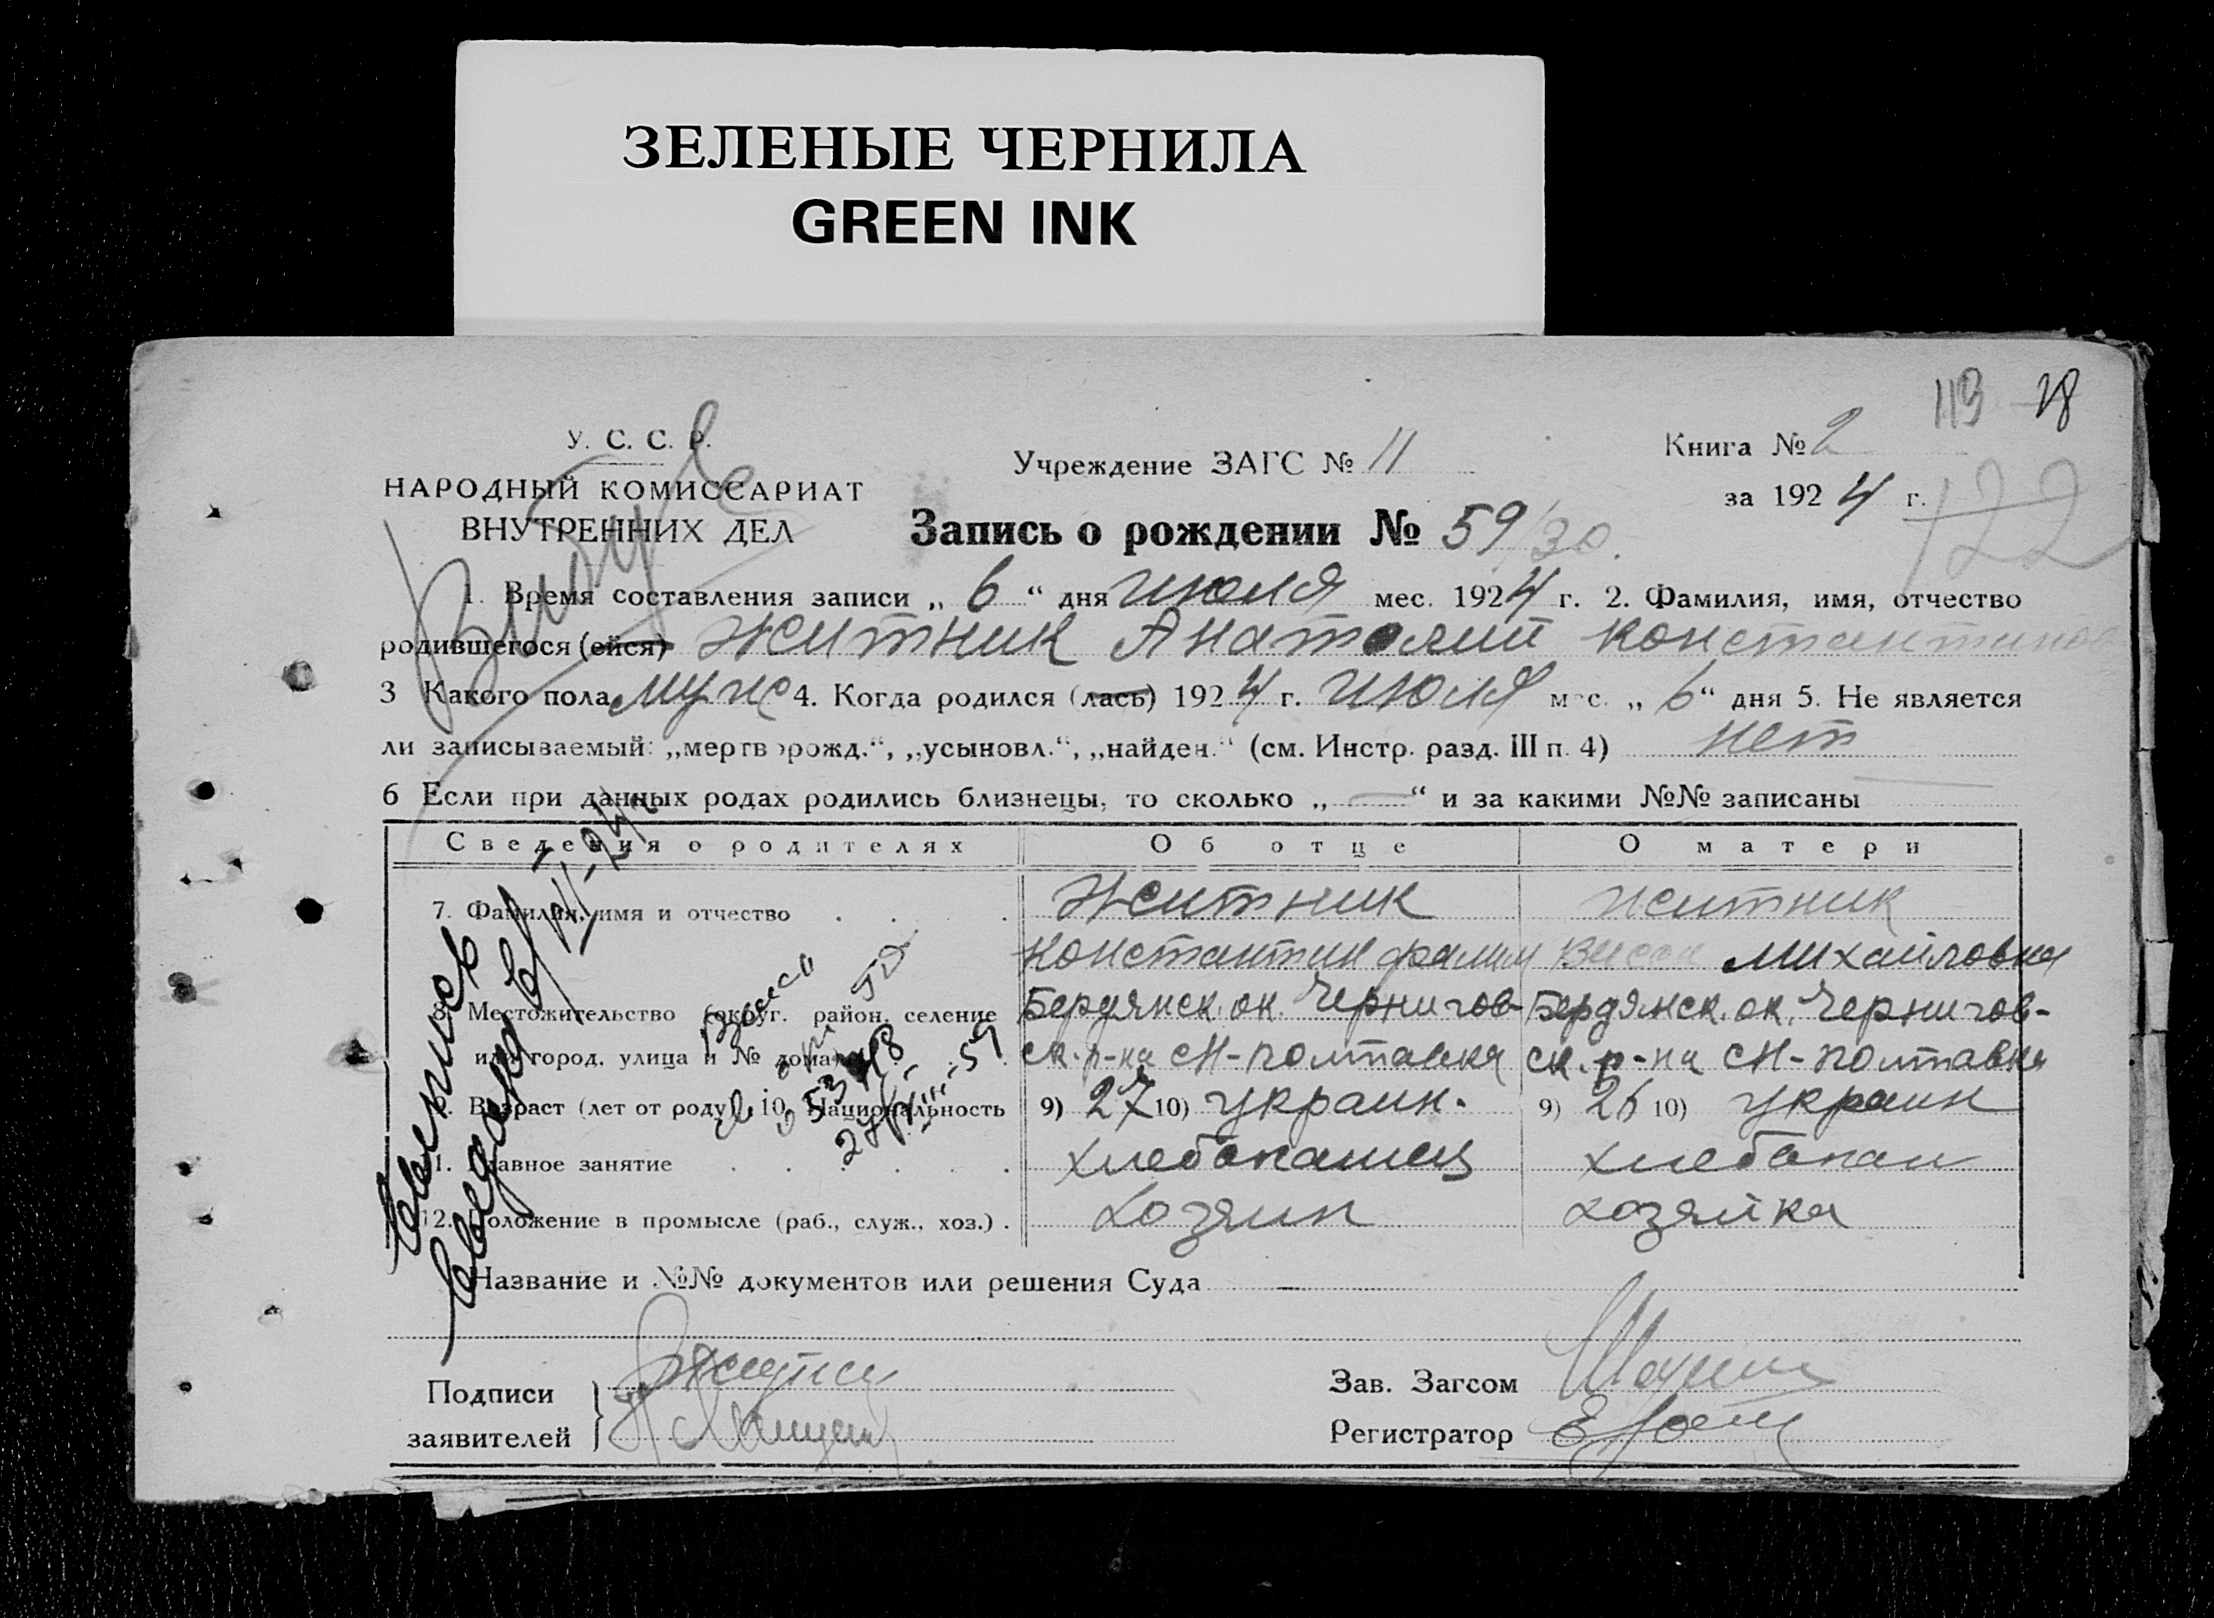 ЗЕЛЕНЫЕ ЧЕРНИЛА
GREEN INK
113 28
У. С. С. Р.
НАРОДНЫЙ КОМИССАРИАТ
ВНУТРЕННИХ ДЕЛ
Учреждение ЗАГС № 11
Книга № 2
за 1924 г.
122
Запись о рождении № 59/30.
1. Время составления записи „ 6 “ дня июля мес. 1924 г. 2. Фамилия, имя, отчество
родившегося (ейся) Житник Анатолий Константинов
3 Какого пола муж 4. Когда родился (лась) 1924 г. июля мес. „ 6 “ дня 5. Не является
ли записываемый: „мертворожд.“, „усыновл.“, „найден.“ (см. Инстр. разд. III п. 4) нет
6 Если при данных родах родились близнецы, то сколько „ — “ и за какими №№ записаны
Сведения о родителях Об отце О матери
7. Фамилия, имя и отчество Житник Житник
Константин Михайловна
8. Местожительство (округ. район, селение Бердянск. ок. Чернигов- Бердянск. ок. Чернигов-
или город, улица и № дома) ск. р-на СН-Полтавка ск. р-на СН-Полтавка
9. Возраст (лет от роду) 10. Национальность 9) 27 10) украин. 9) 26 10) украин
11. Главное занятие хлебопашец хлебопаш
12. Положение в промысле (раб., служ., хоз.) хозяин хозяйка
Название и №№ документов или решения Суда —
Подписи
заявителей
Зав. Загсом
Регистратор